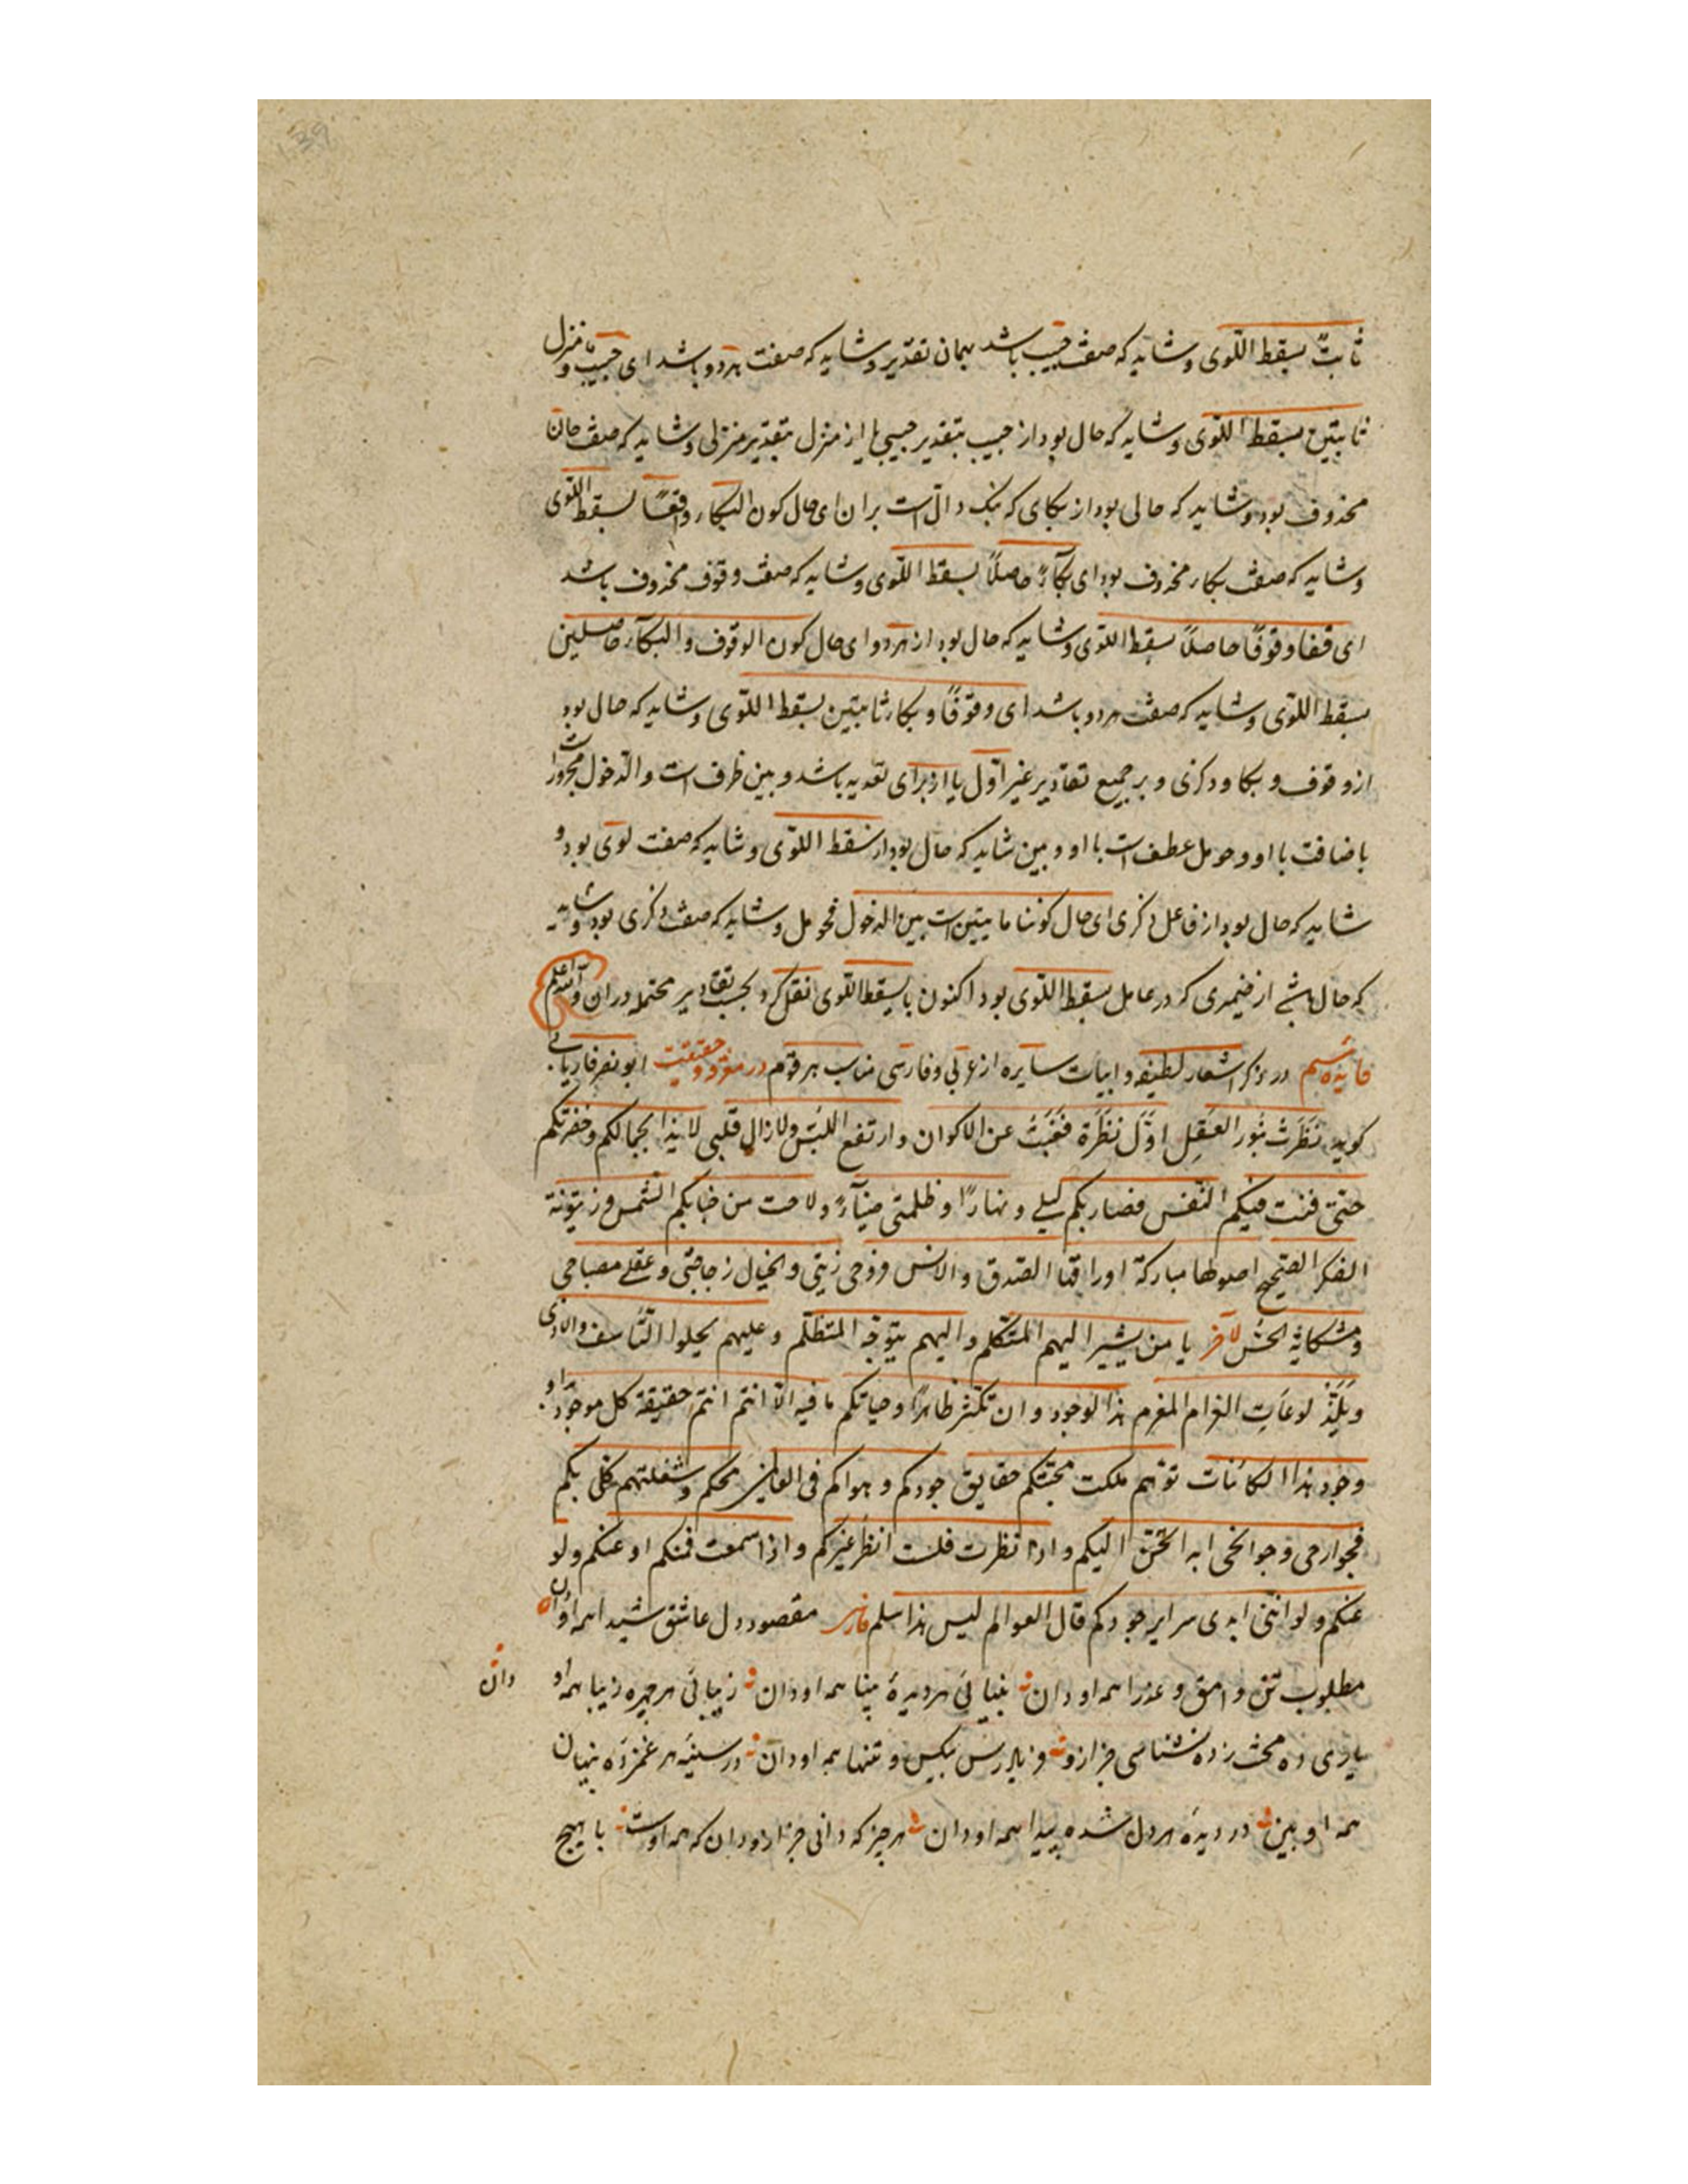 ثابتٌ بسقط اللّوی و شاید که صفت حبیب باشد بهمان تقدیر و شاید که صفت هردو باشد ای حبیبٍ و منزل
ثابتین بسقط اللّوی و شاید که حال بود از حبیب بتقدیر حبیبی یا از منزل بتقدیر منزلی و شاید که صفت حان
محذوف بود و شاید که حالی بود از بکای که نبک دالّ است بران ای حال کون البکاء واقعًا بسقط اللّوی
و شاید که صفت بکاء محذوف بود ای بکآءً حاصلًا بسقط اللّوی و شاید که صفت وقوف محذوف باشد
ای قفا وقوفًا حاصلًا بسقط اللّوی و شاید که حال بود از هردو ای حال کون الوقوف و البکآء حاصلین
بسقط اللّوی و شاید که صفت هردو باشد ای وقوفًا و بکاء ثابتین بسقط اللّوی و شاید که حال بود
از وقوف و بکا و ذکری و بر جمیع تقادیر غیر اوّل یا از برای تعدیه باشد و بین ظرف است و الدّخول مجرور است
باضافت با او و حومل عطف است با او و بین شاید که حال بود از سقط اللّوی و شاید که صفت لوی بود و
شاید که حال بود از فاعل ذکری ای حال کوننا مابینین است بین الدخول فحومل و شاید که صفت ذکری بود و شاید
که حال باشد از ضمیری که در عامل بسقط اللّوی بود اکنون با بسقط اللّوی نقل کرد بحسب تقادیر محتمله دران و الله اعلم
در ذکر اشعار لطیفه و ابیات سایره از عربی و فارسی مناسب هر قوم در معرفت و حقیقت ابو نصر فاریابی
کوید نَظَرَتُ بنُور العَقِل اوّل نَظَرَة فغبتُ عن الاکوان و ارتفع اللبَس و لازال قلبی لایذا بجمالکم و حضرتکم
حتی فنت فیکم النّفس فصار بکم لیلی و نهارًا و ظلمتی ضیآءً و لاحت من خبابکم الشمس و زیتونة
الفکر الصّحیح اصولها مبارکة اوراقها الصّدق و الانس و روحی زیتی و الخیال زجاجتی و عقلی مصباحی
و مشکاته الحسّ لآخر یا من یشیر الیهم المتکلم و الیهم یتوجّه المتظلّم و علیهم یحلوا التّاسف و الاذی
و یَلَذّ لوعات الغرام المغرم هذا لوجود و ان تکثّر ظاهرًا و حیاتکم ما فیه الّا انتم انتم حقیقة کل موجود بدا و
وجود هذا الکائنات توهّم ملکت محبّتکم حقایق جودکم و هواکم فی محکم و شغلتهم کلی بکم
فجوارحی و جوانحی ابدا تحنّ الیکم و اذا نظرت فلست انظر غیرکم و اذا سمعت فمنکم او عنکم و لو
عنکم و لو انّنی ابدی سرایر جودکم قال العوالم لیس هذا سلم فارسی مقصود دل عاشق شیدا همه او دان
مطلوب تن وامق و عذرا همه او دان بینائی هر دیدۀ بینا همه او دان زیبائی هر چهره زیبا همه او
دان
یاری ده محنت زده نشناسی جز ازو فریاد رس بیکس و تنها همه او دان در سینۀ هر غمزده پنهان
همه او بین در دیدۀ هر دل شده پیدا همه او دان هر چیز که دانی جز ازو دان که همه اوست با هیچ